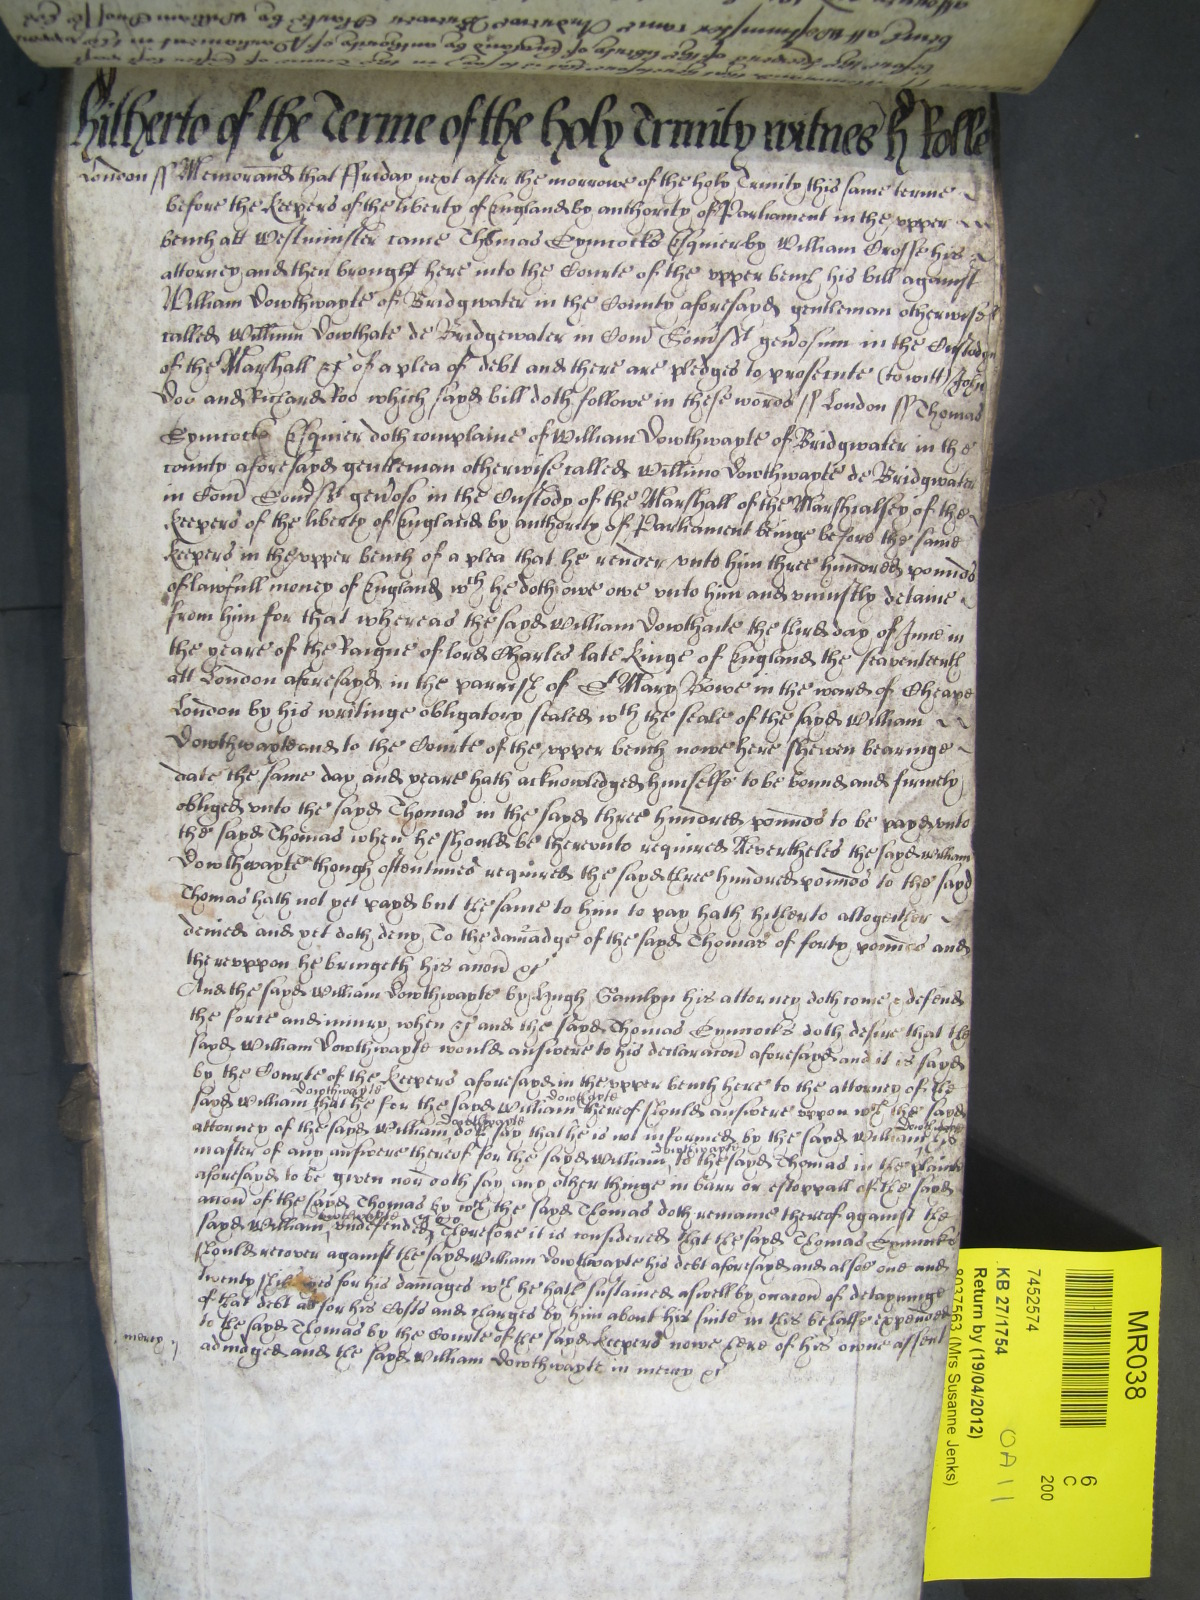 hitherto of the Terme of the holy Trinity witnes H Rolle
London ss Memorand that ffriday next after the morrowe of the holy Trinity this same terme
before the Keepers of the liberty of England by authority of Parliament in the upper
bench att Westminster came Thomas Symcocks Esquier by William Crosse his
attorney and then brought here into the Courte of the upper bench his bill against
William Dowthwayte of Bridgwater in the County aforesayd gentleman otherwise
called Willim Dowthate de Bridgewater in Com Somst generosum in the Custody
of the Marshall &c of a plea of debt and there are pledges to prosecute (to witt) John
Doo and Richard Roo which sayd bill doth followe in these words ss London ss Thomas
Symcocks Esquier doth complaine of William Dowthwayte of Bridgwater in the
county aforesayd gentleman otherwise called Willimo Dowthwayte de Bridgwater
in Com Somst geñoso in the Custody of the Marshall of the Marshialsey of the
Keepers of the liberty of England by authority of Parliament beinge before the same
Keepers in the upper bench of a plea that he render unto him three hundred pounds
of lawfull money of England wch he doth owe owe unto him and uniustly detaine
from him for that whereas the sayd William Dowthaite the third day of June in
the yeare of the Raigne of lord Charles late Kinge of England the seaventeeth
att London aforesayd in the parrish of St Mary Bowe in the ward of Cheape
London by his writinge obligatory sealed wth the seale of the sayd William
Dowthwayte and to the Courte of the upper bench nowe here shewen bearinge
date the same day and yeare hath acknowledged himselfe to be bound and firmely
obliged unto the sayd Thomas in the sayd three hundred pounds to be payd unto
the sayd Thomas when he should be thereunto required Nevertheles the sayd William
Dowthwayte though oftentimes required the sayd three hundred pounds to the sayd
Thomas hath not yet payd but the same to him to pay hath hitherto altogeither
denied and yet doth deny To the damadge of the sayd Thomas of forty pounds and
thereuppon he bringeth his accon &c
And the sayd William Dowthwayte by Hugh Gamlyn his attorney doth come & defend
the force and iniury when &c and the sayd Thomas Symcocks doth desire that the
sayd William Dowthwayte would answere to his declaracon aforesayd and it is sayd
by the Courte of the Keepers aforesayd in the upper bench here to the attorney of the
sayd William Dowthwayte that he for the sayd William Dowthayte thereof should answere uppon wch the sayd
attorney of the sayd William Dowthwayte doth say that he is not informed by the sayd William Dowthwayte his
master of any answere thereof for the sayd William Dowthwayte to the sayd Thomas in the plainte
aforesayd to be given nor doth say any other thinge in barr or estoppall of the sayd
accon of the sayd Thomas by wch the sayd Thomas doth remaine thereof against the
sayd William Dowthwayte undefended &c Therefore it is considered that the sayd Thomas Symcocks
should recover against the sayd William Dowthwayte his debt aforesayd and alsoe one and
twenty shillings for his damages wch he hath sustained aswell by occacon of detayninge
of that debt as for his Costs and charges by him about his suite in this behalfe expended
to the sayd Thomas by the Courte of the sayd Keepers nowe here of his owne assent
mercy adiudged and the sayd William Dowthwayte in mercy &c
MR038
6
C
200
7452574
KB 27/1754
OA 11
Return by (19/04/2012)
8037563 (Mrs Susanne Jenks)